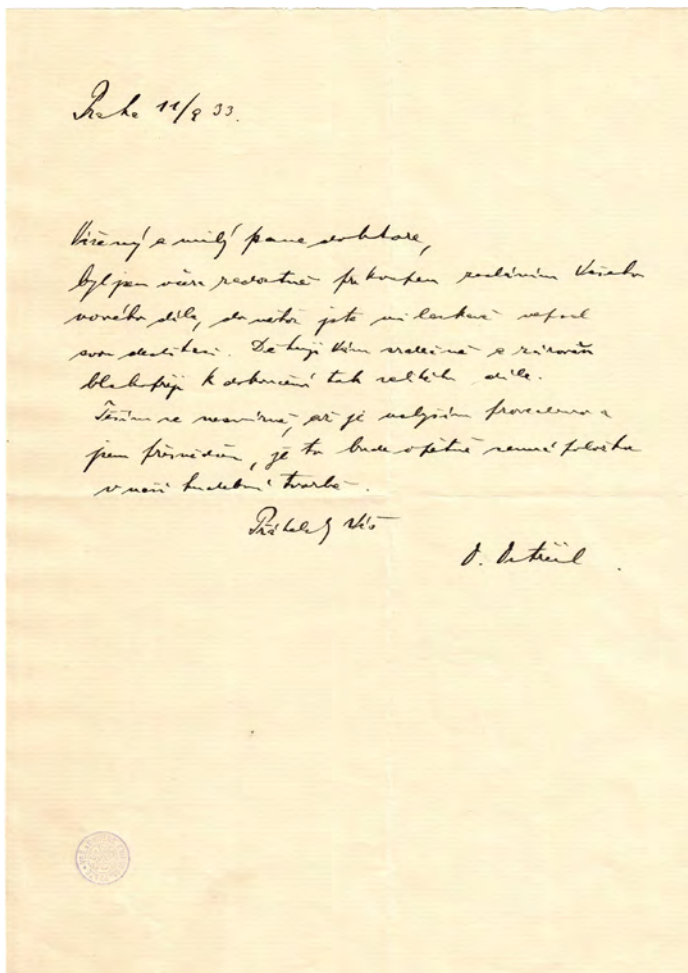 Praha 11/9 33.
Vážený a milý pane doktore,
byl jsem včera radostně překvapen zasláním Vašeho
nového díla, do něhož jste mi laskavě vepsal
svou dedikaci. Děkuji Vám srdečně a zároveň
blahopřeji k dokončení tak velkého díla.
Těším se nesmírně, až je uslyším provedeno a
jsem přesvědčen, že to bude opětně cenná položka
v naší hudební tvorbě.
Přátelsky Váš
O. Ostrčil